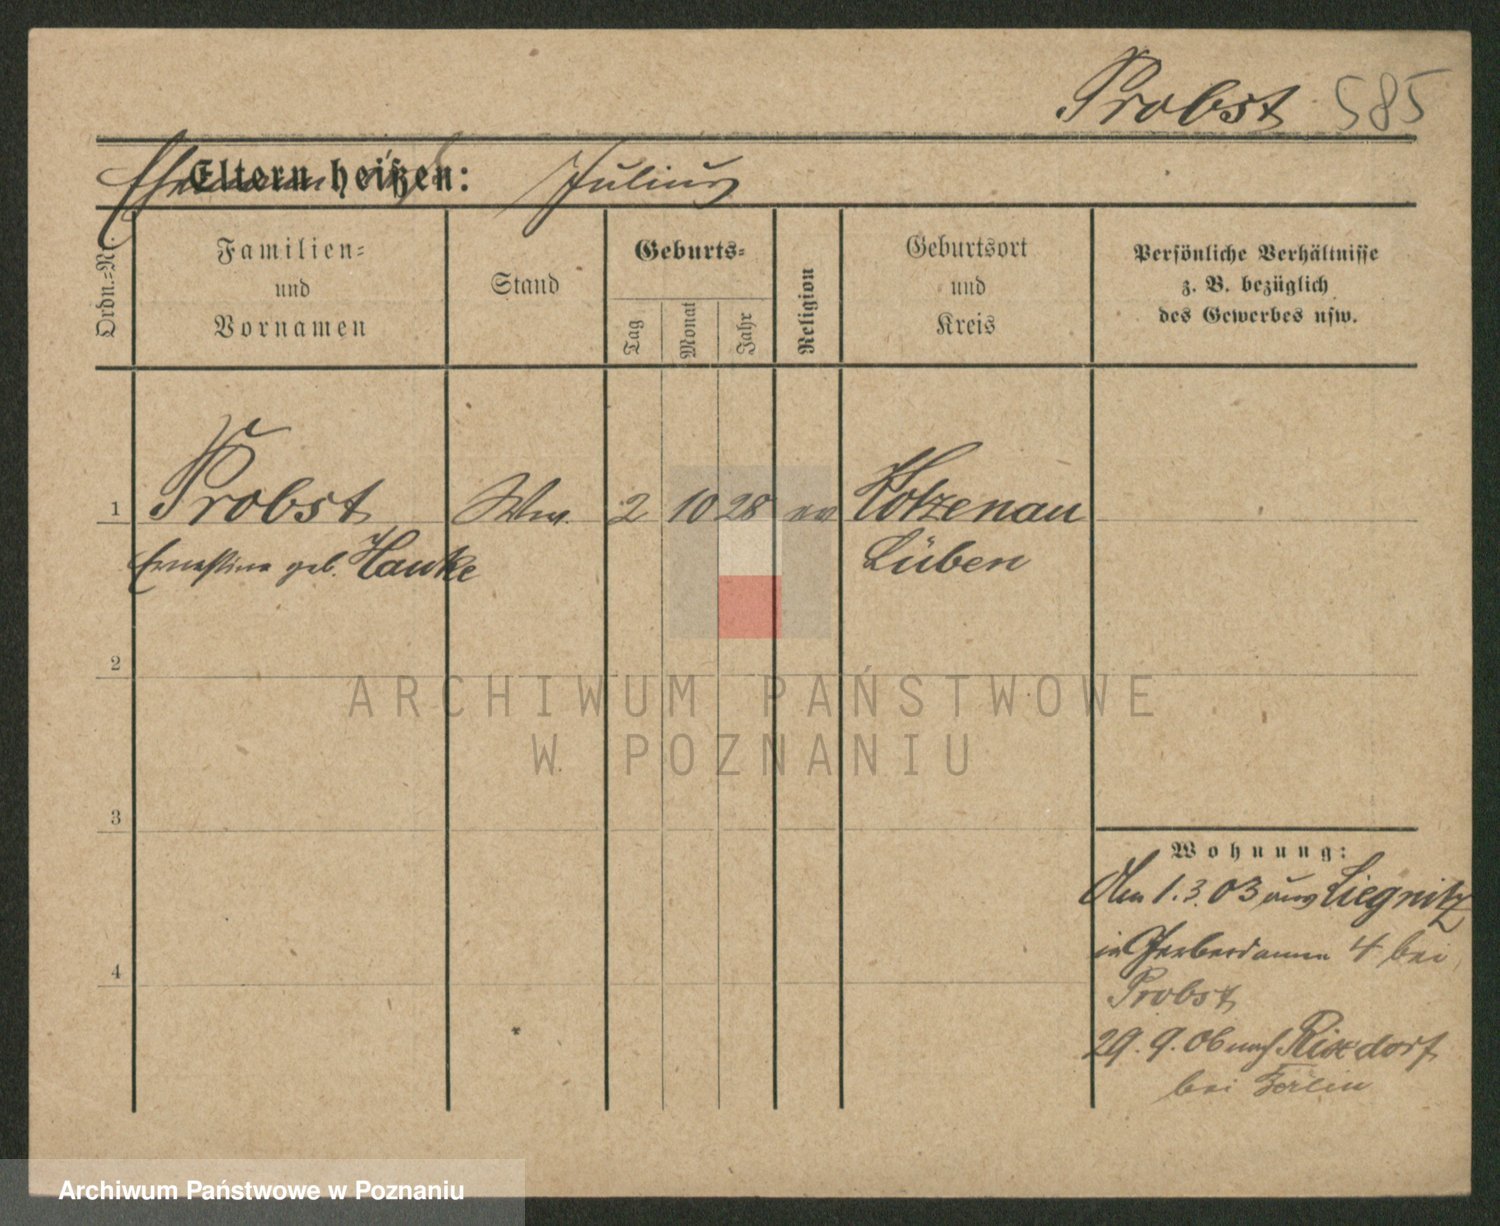 Probst 585
Ehemann Eltern heißen: Julius
Ordn.=Nr.
Familien=
und
Vornamen
Stand
Geburts=
Tag
Monat
Jahr
Religion
Geburtsort
und
Kreis
Persönliche Verhältnisse
z. B. bezüglich
des Gewerbes usw.
1 Probst Ww. 2 10 28 ev Kotzenau
Ernestine geb. Hanke Lüben
2
ARCHIWUM PAŃSTWOWE
W POZNANIU
3
4
Wohnung:
Am 1. 3. 03 aus Liegnitz
in Gerberdamm 4 bei
Probst
29. 9. 06 nach Rixdorf
bei Berlin
Archiwum Państwowe w Poznaniu